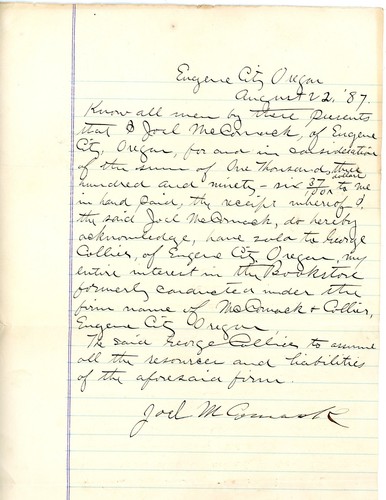 Eugene City Oregon
August 22, '87.
Know all men by these presents
that I Joel McCornack, of Eugene
City, Oregon, for and in consideration
of the sum of One Thousand, three
hundred and ninety-six 37/100 dollars to me
in hand paid, the receipt whereof I,
the said Joel McCornack, do hereby
acknowledge, have sold to George
Collier, of Eugene City Oregon, my
entire interest in the Bookstore
formerly conducted under the
firm name of McCornack & Collier,
Eugene City Oregon,
The said George Collier to assume
all the resources and liabilities
of the aforesaid firm.
Joel McCornack